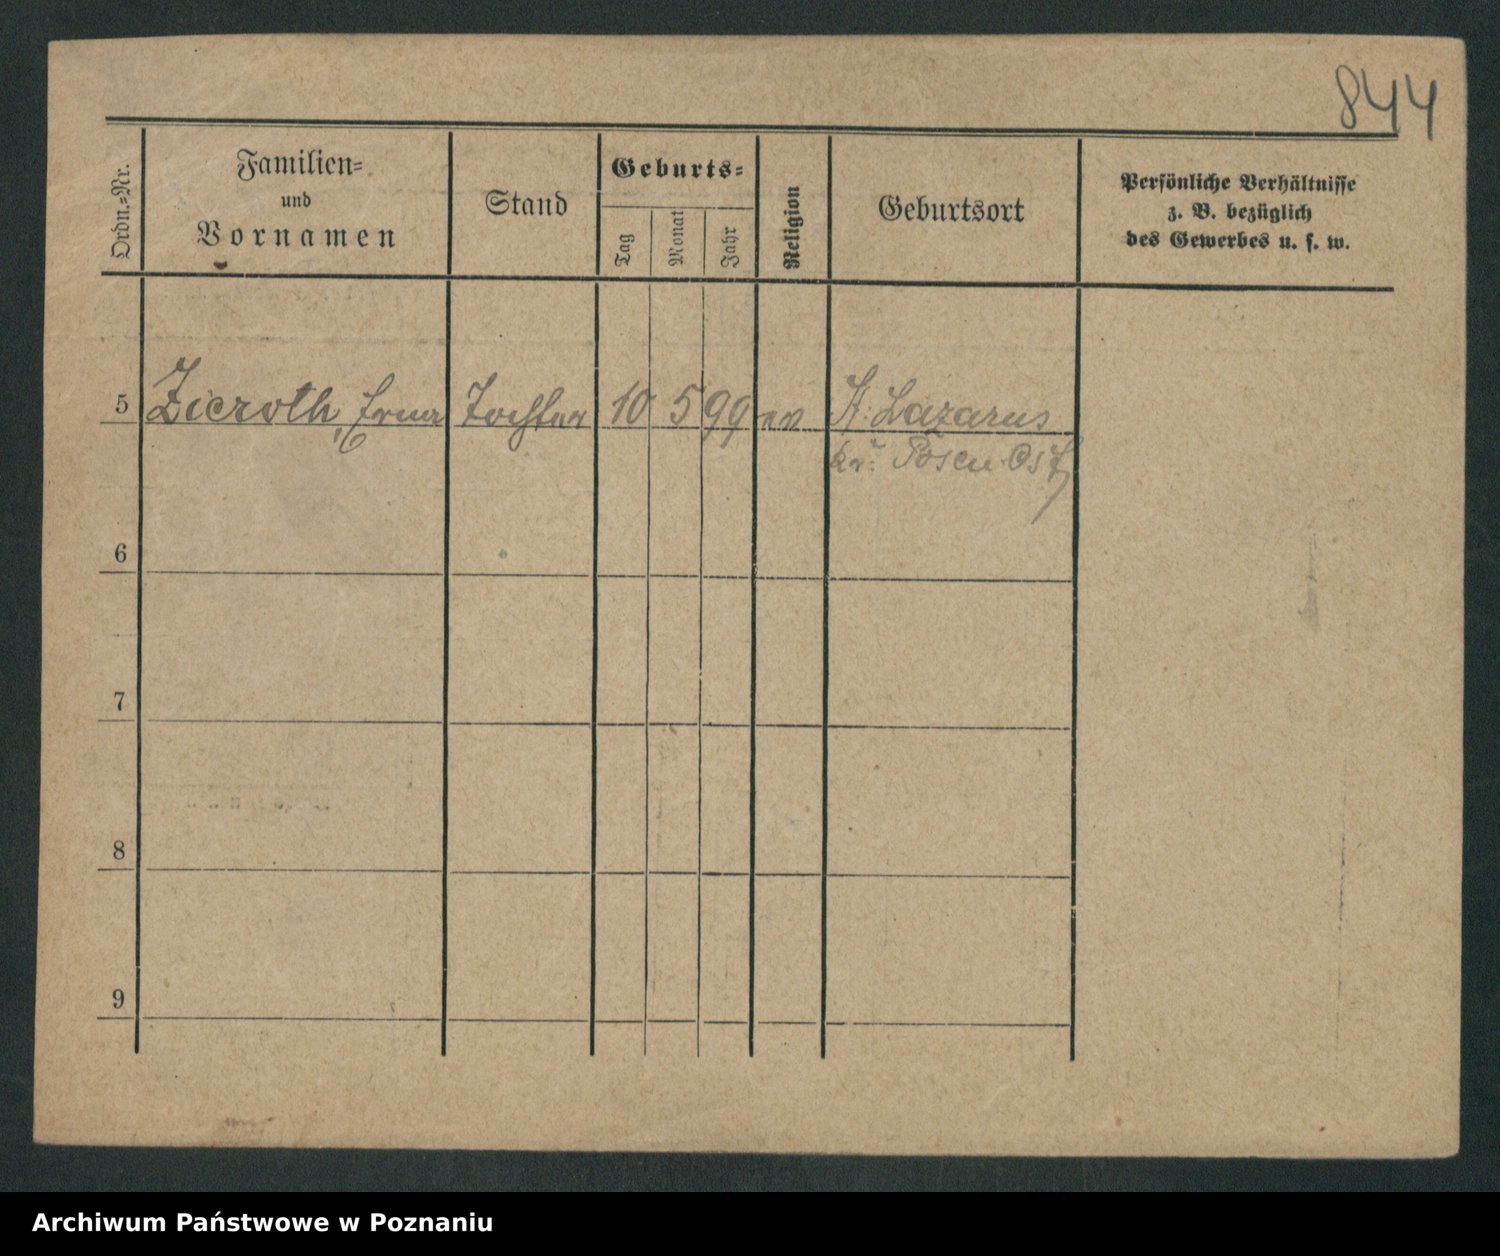 844
Ordn.-Nr.
Familien-
und
Vornamen
Stand
Geburts-
Tag
Monat
Jahr
Religion
Geburtsort
Persönliche Verhältnisse
z. B. bezüglich
des Gewerbes u. s. w.
5 Zieroth, Erna Tochter 10 5 99 ev St. Lazarus
Kr: Posen Ost
6
7
8
9
Archiwum Państwowe w Poznaniu